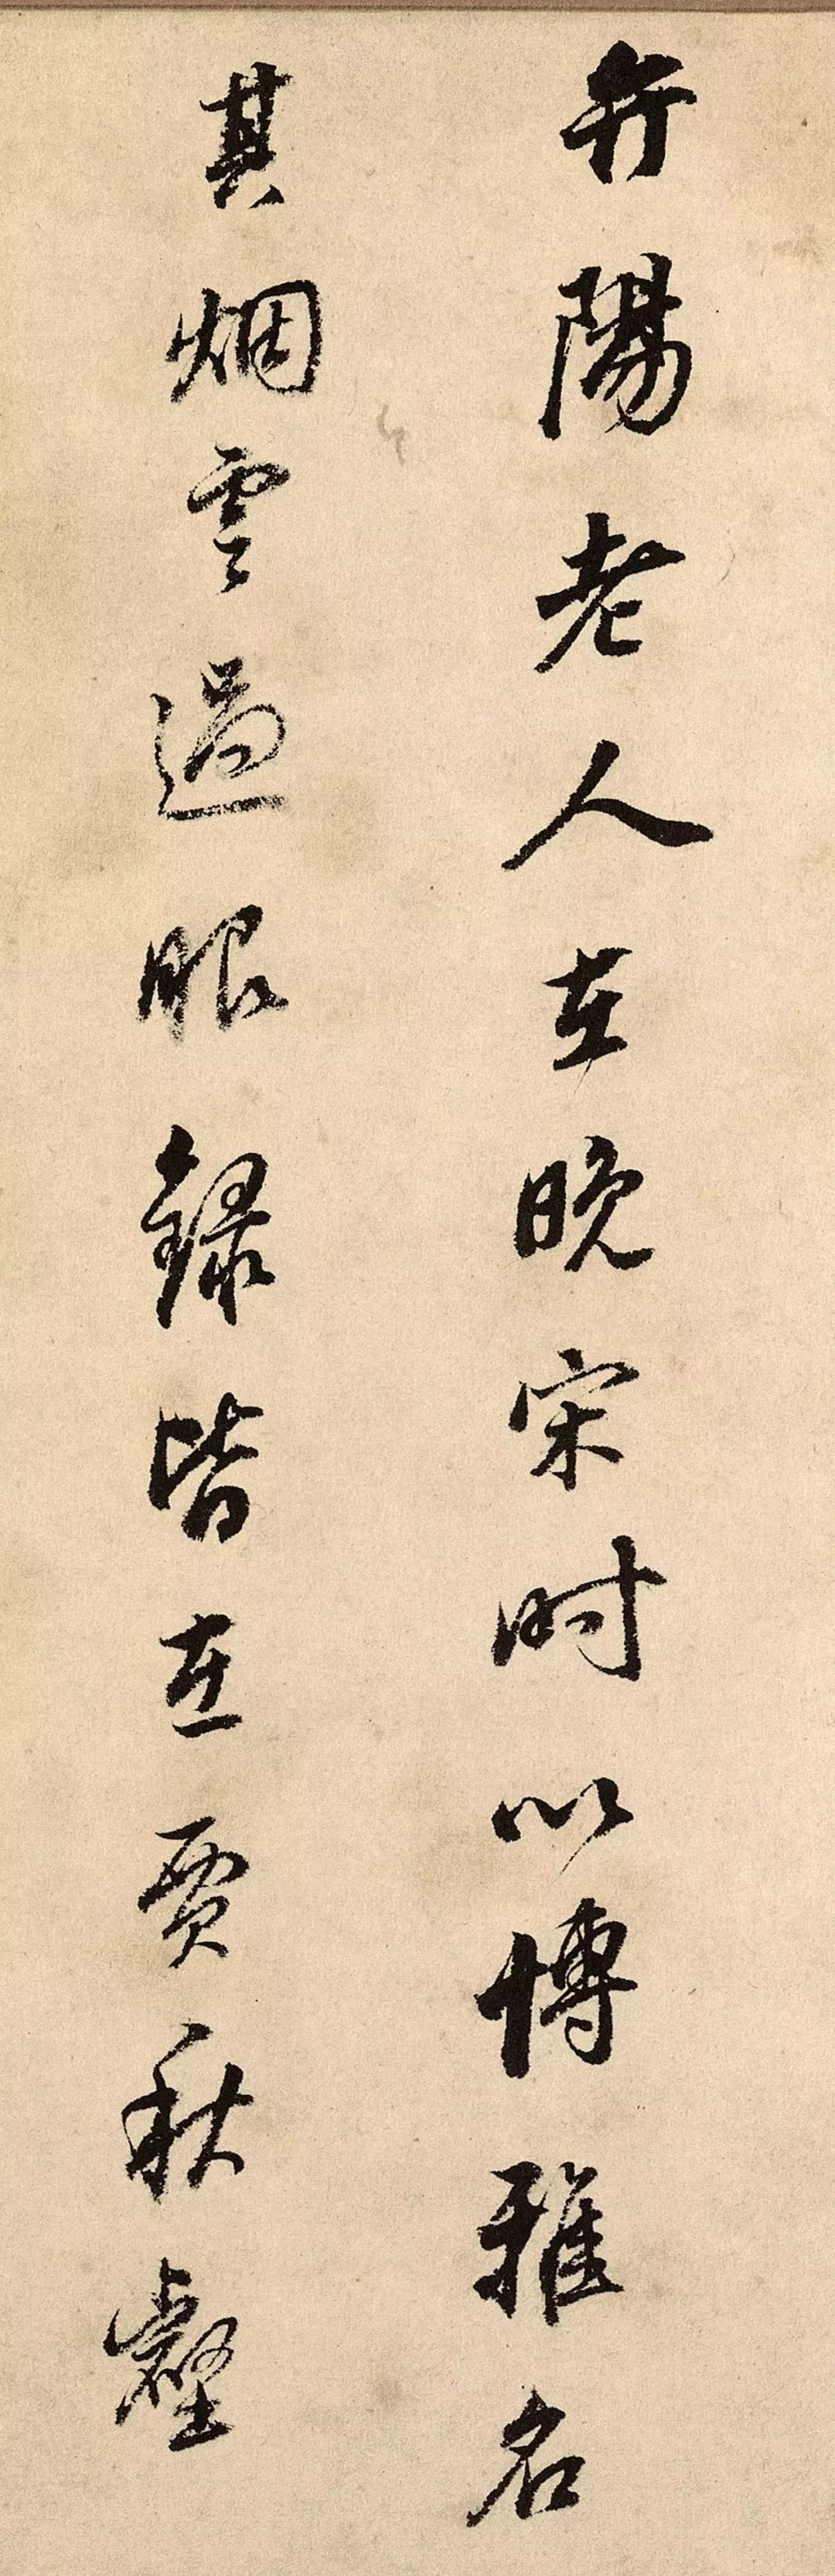 弁陽老人在晚宋时以博雅名
其烟雲過眼錄皆在贾秋壑